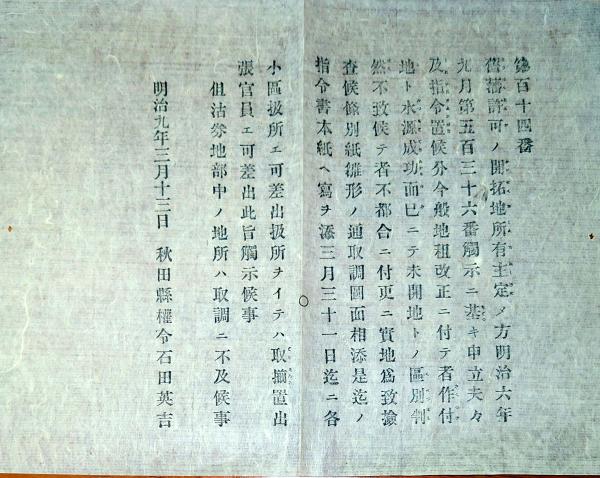 第百十四番
舊藩許可ノ開拓地所有主定メ方明治六年
九月第五百三十六番觸示ニ基キ申立夫々
及指令置候分今般地租改正ニ付テ者作付
地ト水源成功而已ニテ未開地トノ區別判
然不致候テ者不都合ニ付更ニ實地爲致撿
査候條別紙雛形ノ通取調圖面相添是迄ノ
指令書本紙ヘ寫ヲ添三月三十一日迄ニ各
小區扱所エ可差出扱所ヲイテハ取揃置出
張官員エ可差出此旨觸示候事
但沽券地部中ノ地所ハ取調ニ不及候事
明治九年三月十三日 秋田縣權令石田英吉